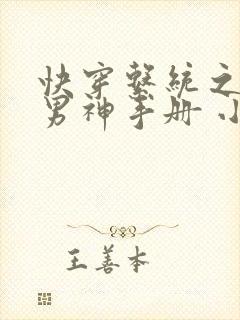 快穿系統之
男神手册 小
王善本